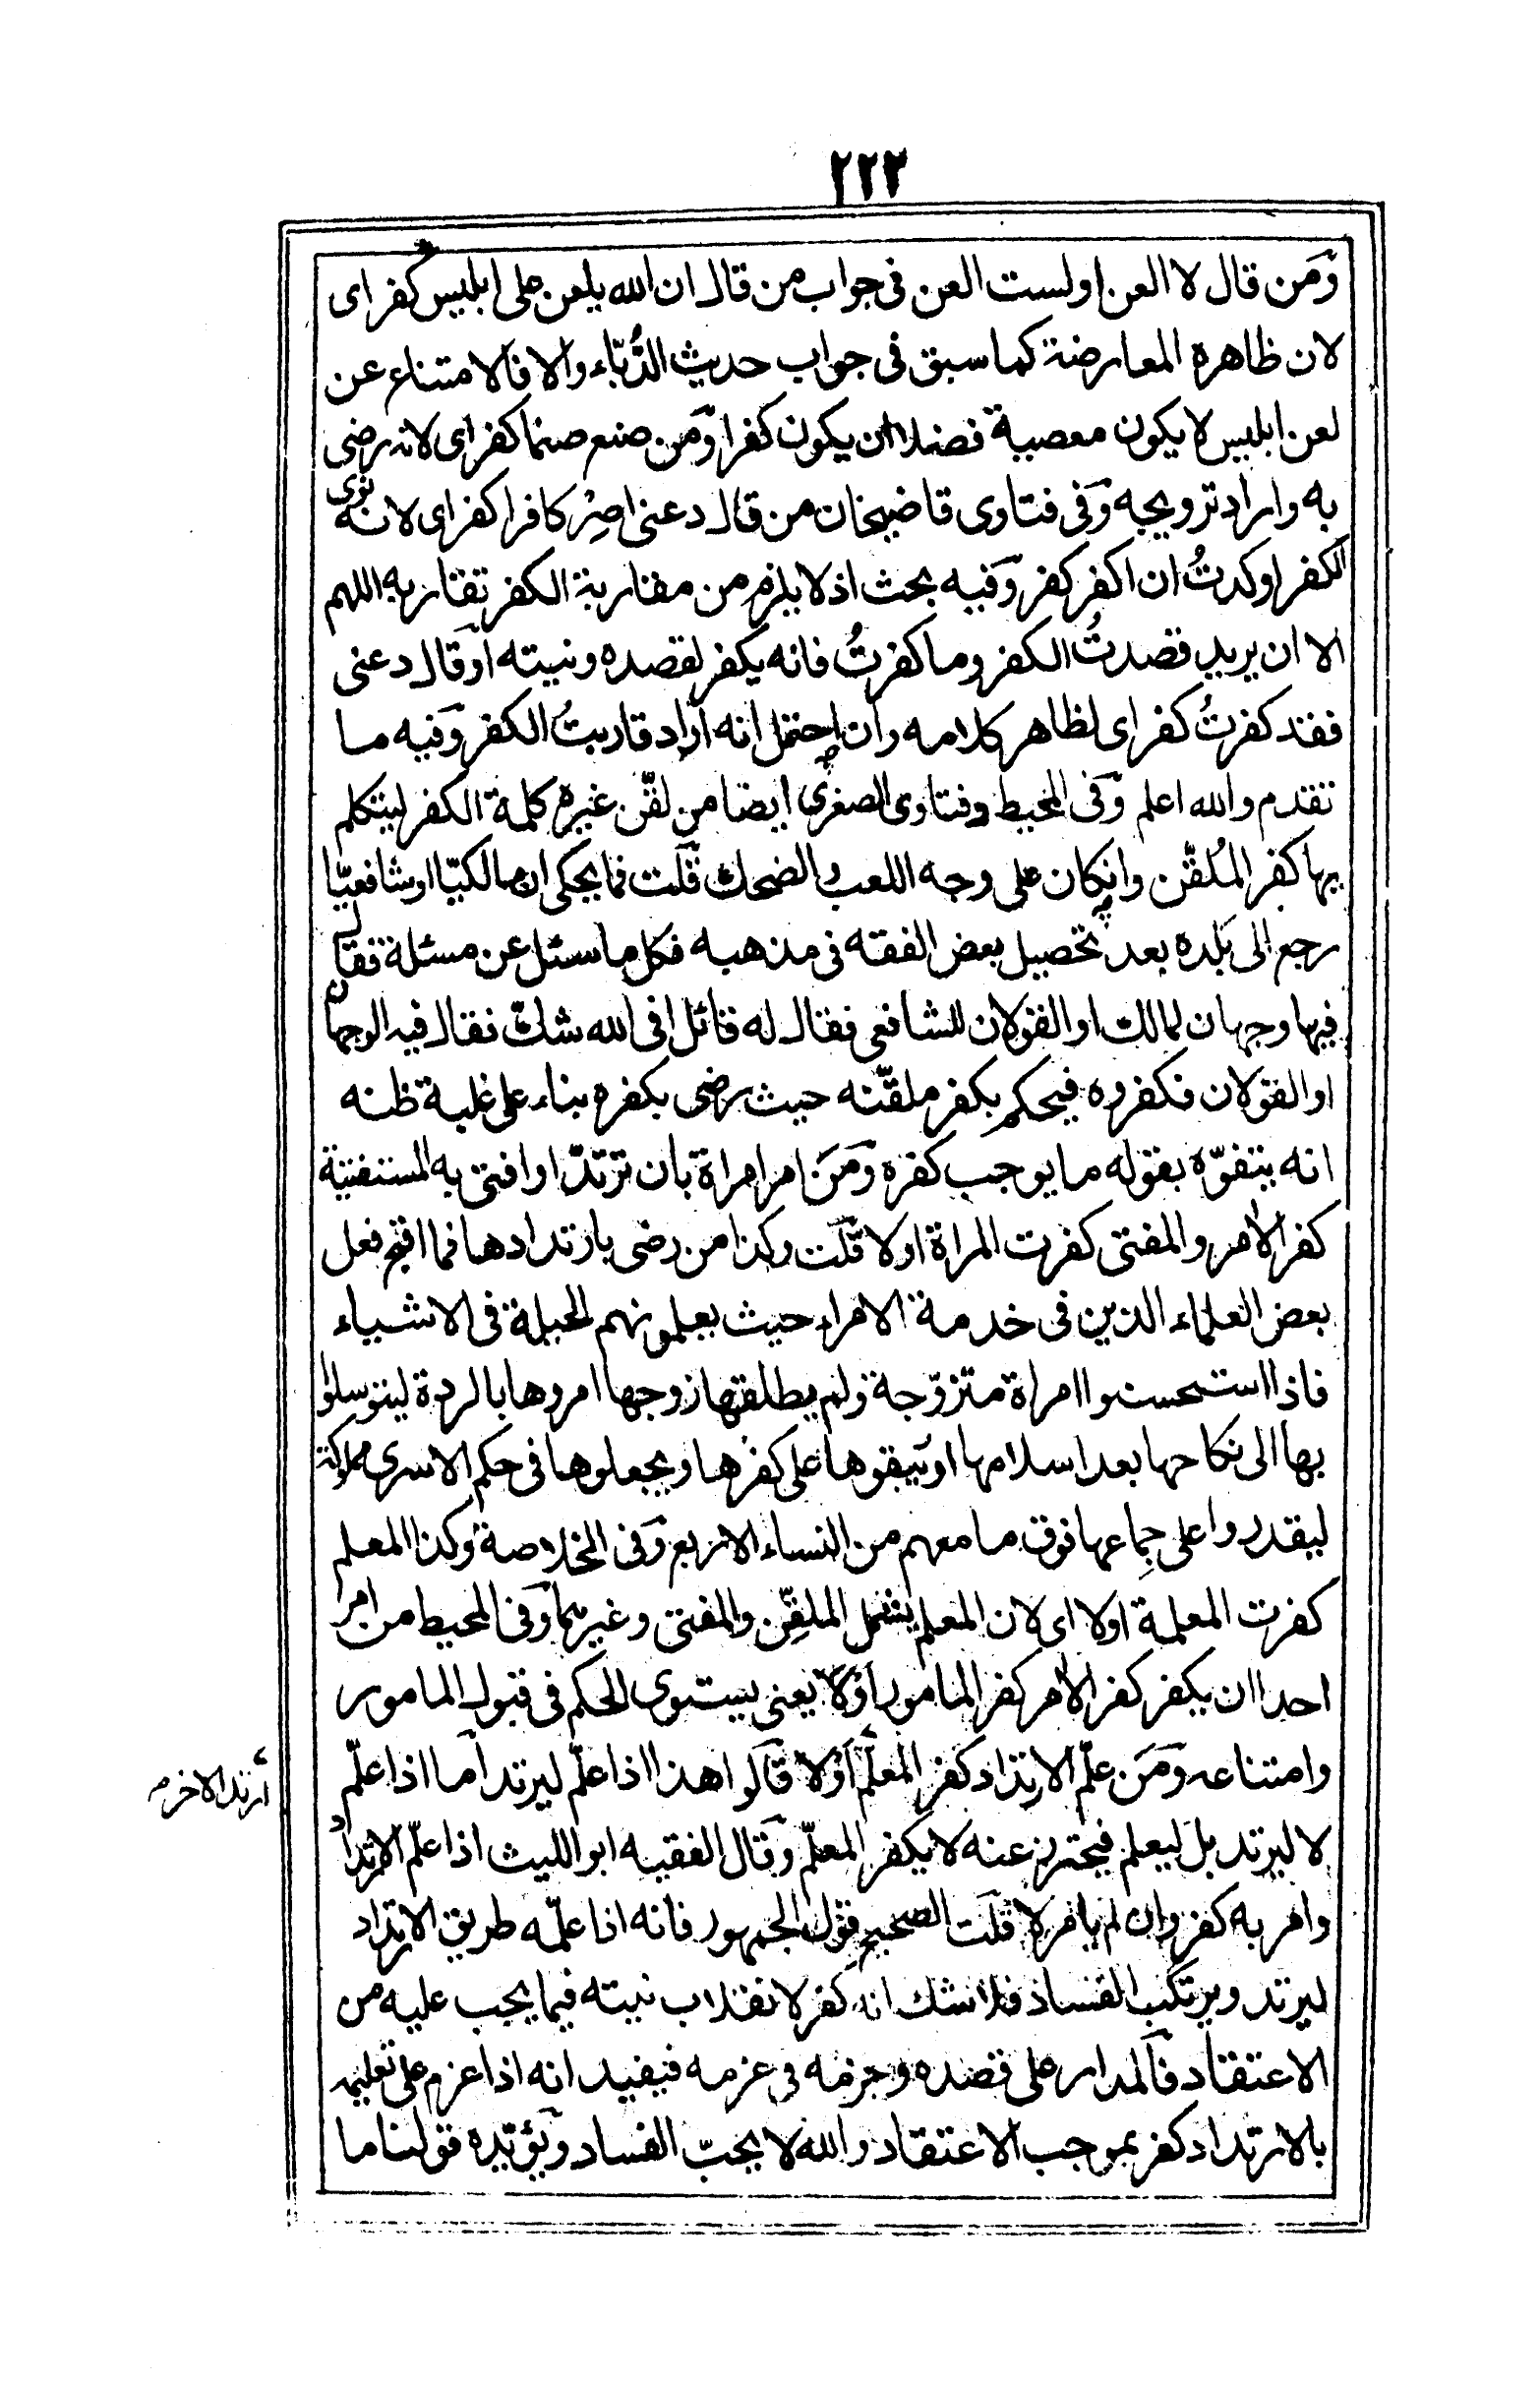 ٢٢٣
ومن قال لا العن اولست العن فى جواب من قال ان الله يلعن على ابليس كفر اى
لان ظاهره المعارضة كما سبق فى جواب حديث الدُّبّاء والا فالامتناع عن
لعن ابليس لا يكون معصية فضلا ان يكون كفرا ومن صنع صنما كفر اى لانه رضى
به واراد ترويجه وفى فتاوى قاضيخان من قال دعنى اصِرْ كافرا كفر اى لانه نوى
الكفر او كدتُ ان اكفر كفر وفيه بحث اذ لا يلزم من مقاربة الكفر تقاربه اللهم
الا ان يريد قصدتُ الكفر وما كفرتُ فانه يكفر لقصده ونيته اوقال دعنى
فقد كفرتُ كفر اى لظاهر كلامه وان احتمل انه اراد قاربتُ الكفر وفيه ما
تقدم والله اعلم وفى المحيط وفتاوى الصغرى ايضا من لقّن غيره كلمة الكفر ليتكلم
بها كفر المُلقّن وانكان على وجه اللعب والضحك قلت فما يحكى ان مالكيّا اوشافعيّا
رجع الى بلده بعد تحصيل بعض الفقه فى مذهبه فكل ما سئل عن مسئلة فقال
فيها وجهان لمالك او القولان للشافعى فقال له قائل افى الله شكّ فقال فيه الوجهان
او القولان فكفروه فيحكم بكفر ملقّنه حيث رضى بكفره بناء على غلبة ظنه
انه يتفوّه بقوله ما يوجب كفره ومن امر امراة بان ترتدّ او افتى به المستفتية
كفر الآمر والمفتى كفرت المراة اولا قلت وكذا من رضى بارتدادها فما اقبح فعل
بعض العلماء الذين فى خدمة الامراء حيث يعلمونهم الحيلة فى الاشياء
فاذا استحسنوا امراة متزوّجة ولم يطلقها زوجها امروها بالردة ليتوسلوا
بها الى نكاحها بعد اسلامها او يبقوها على كفرها ويجعلوها فى حكم الاسرى مملوكة
ليقدروا على جِماعها فوق ما معهم من النساء الاربع وفى الخلاصة وكذا المعلم
كفرت المعلمة اولا اى لان المعلم يشمل الملقِّن والمفتى وغيرهما وفى المحيط من امر
احدا ان يكفر كفر الآمر كفر المامور اوْلا يعنى يستوى الحكم فى قبول المامور
وامتناعه ومن علّم الارتداد كفر المعلّم أوْلا قالوا هذا اذا علّم ليرتد اما اذا علّم
ارتد الاخر م
لا ليرتد بل ليعلم فيحترز عنه لا يكفر المعلّم وقال الفقيه ابو الليث اذا علّم الارتداد
وامر به كفر وان لم يامر لا قلت الصحيح قول الجمهور فانه اذا علّمه طريق الارتداد
ليرتد ويرتكب الفساد فلا شك انه كفر لانقلاب نيته فيما يجب عليه من
الاعتقاد فالمدار على قصده وجزمه فى عزمه فيفيد انه اذا عزم على تعليمه
بالارتداد كفر بموجب الاعتقاد والله لا يحبّ الفساد ويؤيّده قولنا ما